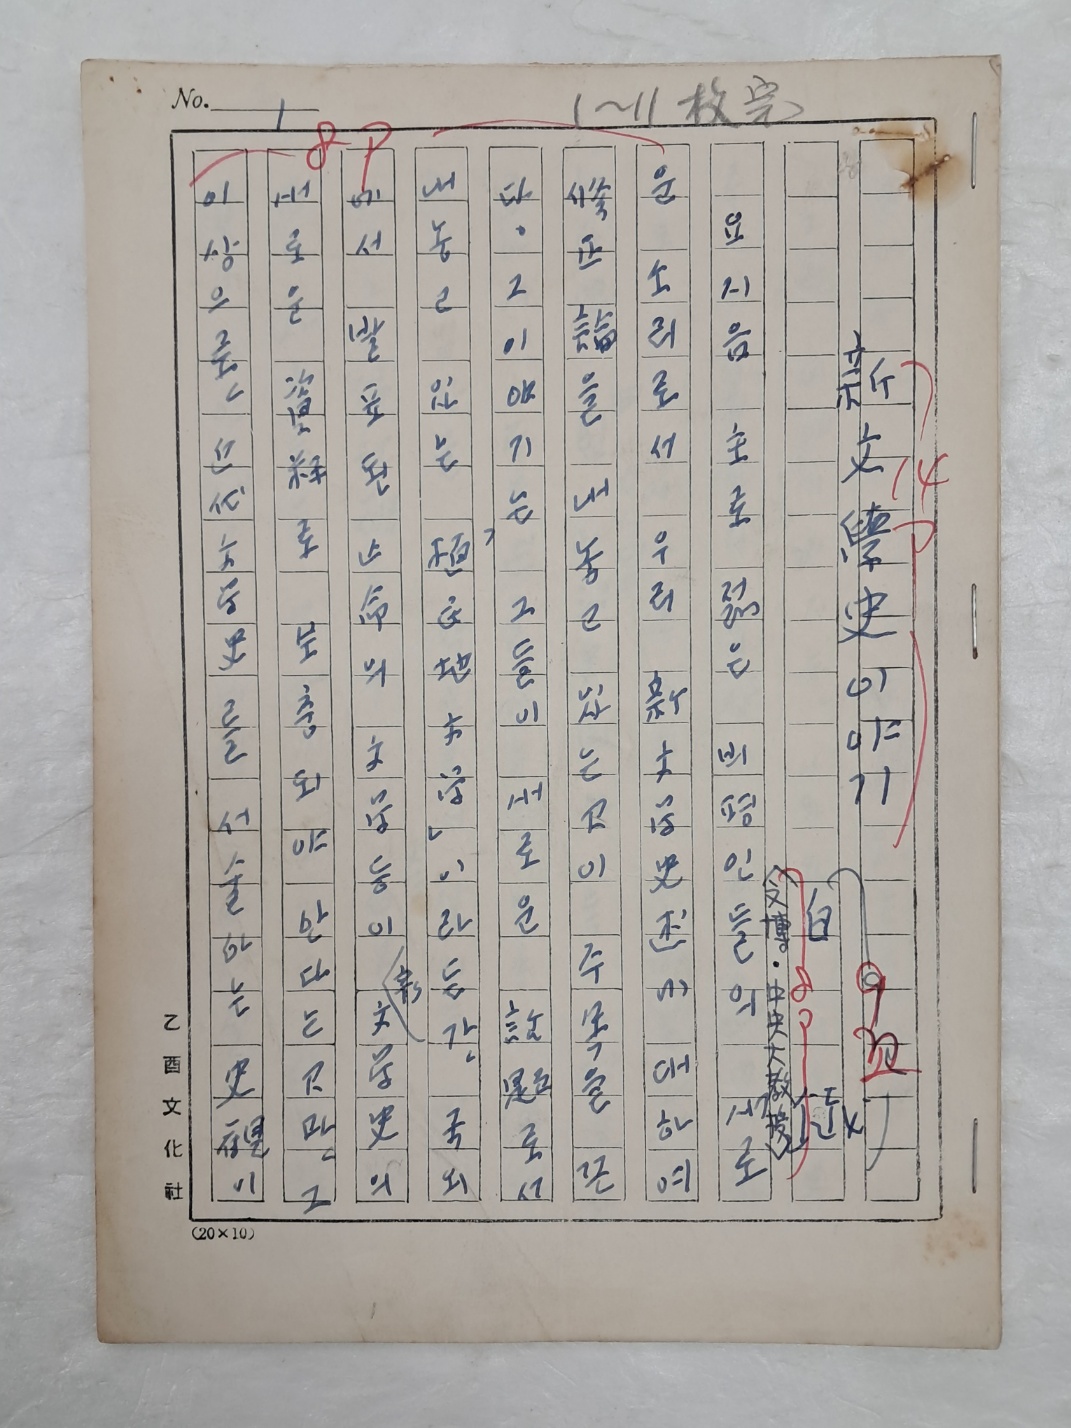 No. 1
1~11 枚完
新文學史 이야기
白 鐵
(文博·中央大敎授)
요지음 主로 젊은 비평인들의 새로
운 소리로서 우리 新文学史 대하여
을 내놓고 있는 것이 주목을 끈
다. 그 이야기는 그들이 새로운 話題로서
내놓고 있는 「植民地文学」이라든가, 국외
에서 발표된 亡命의 文学등이 新文学史의
새로운 資料로 보충되야 한다는 것과, 그
이상의 近代文学史를 서술하는 史觀이
乙酉文化社
(20×10)
8P
14P